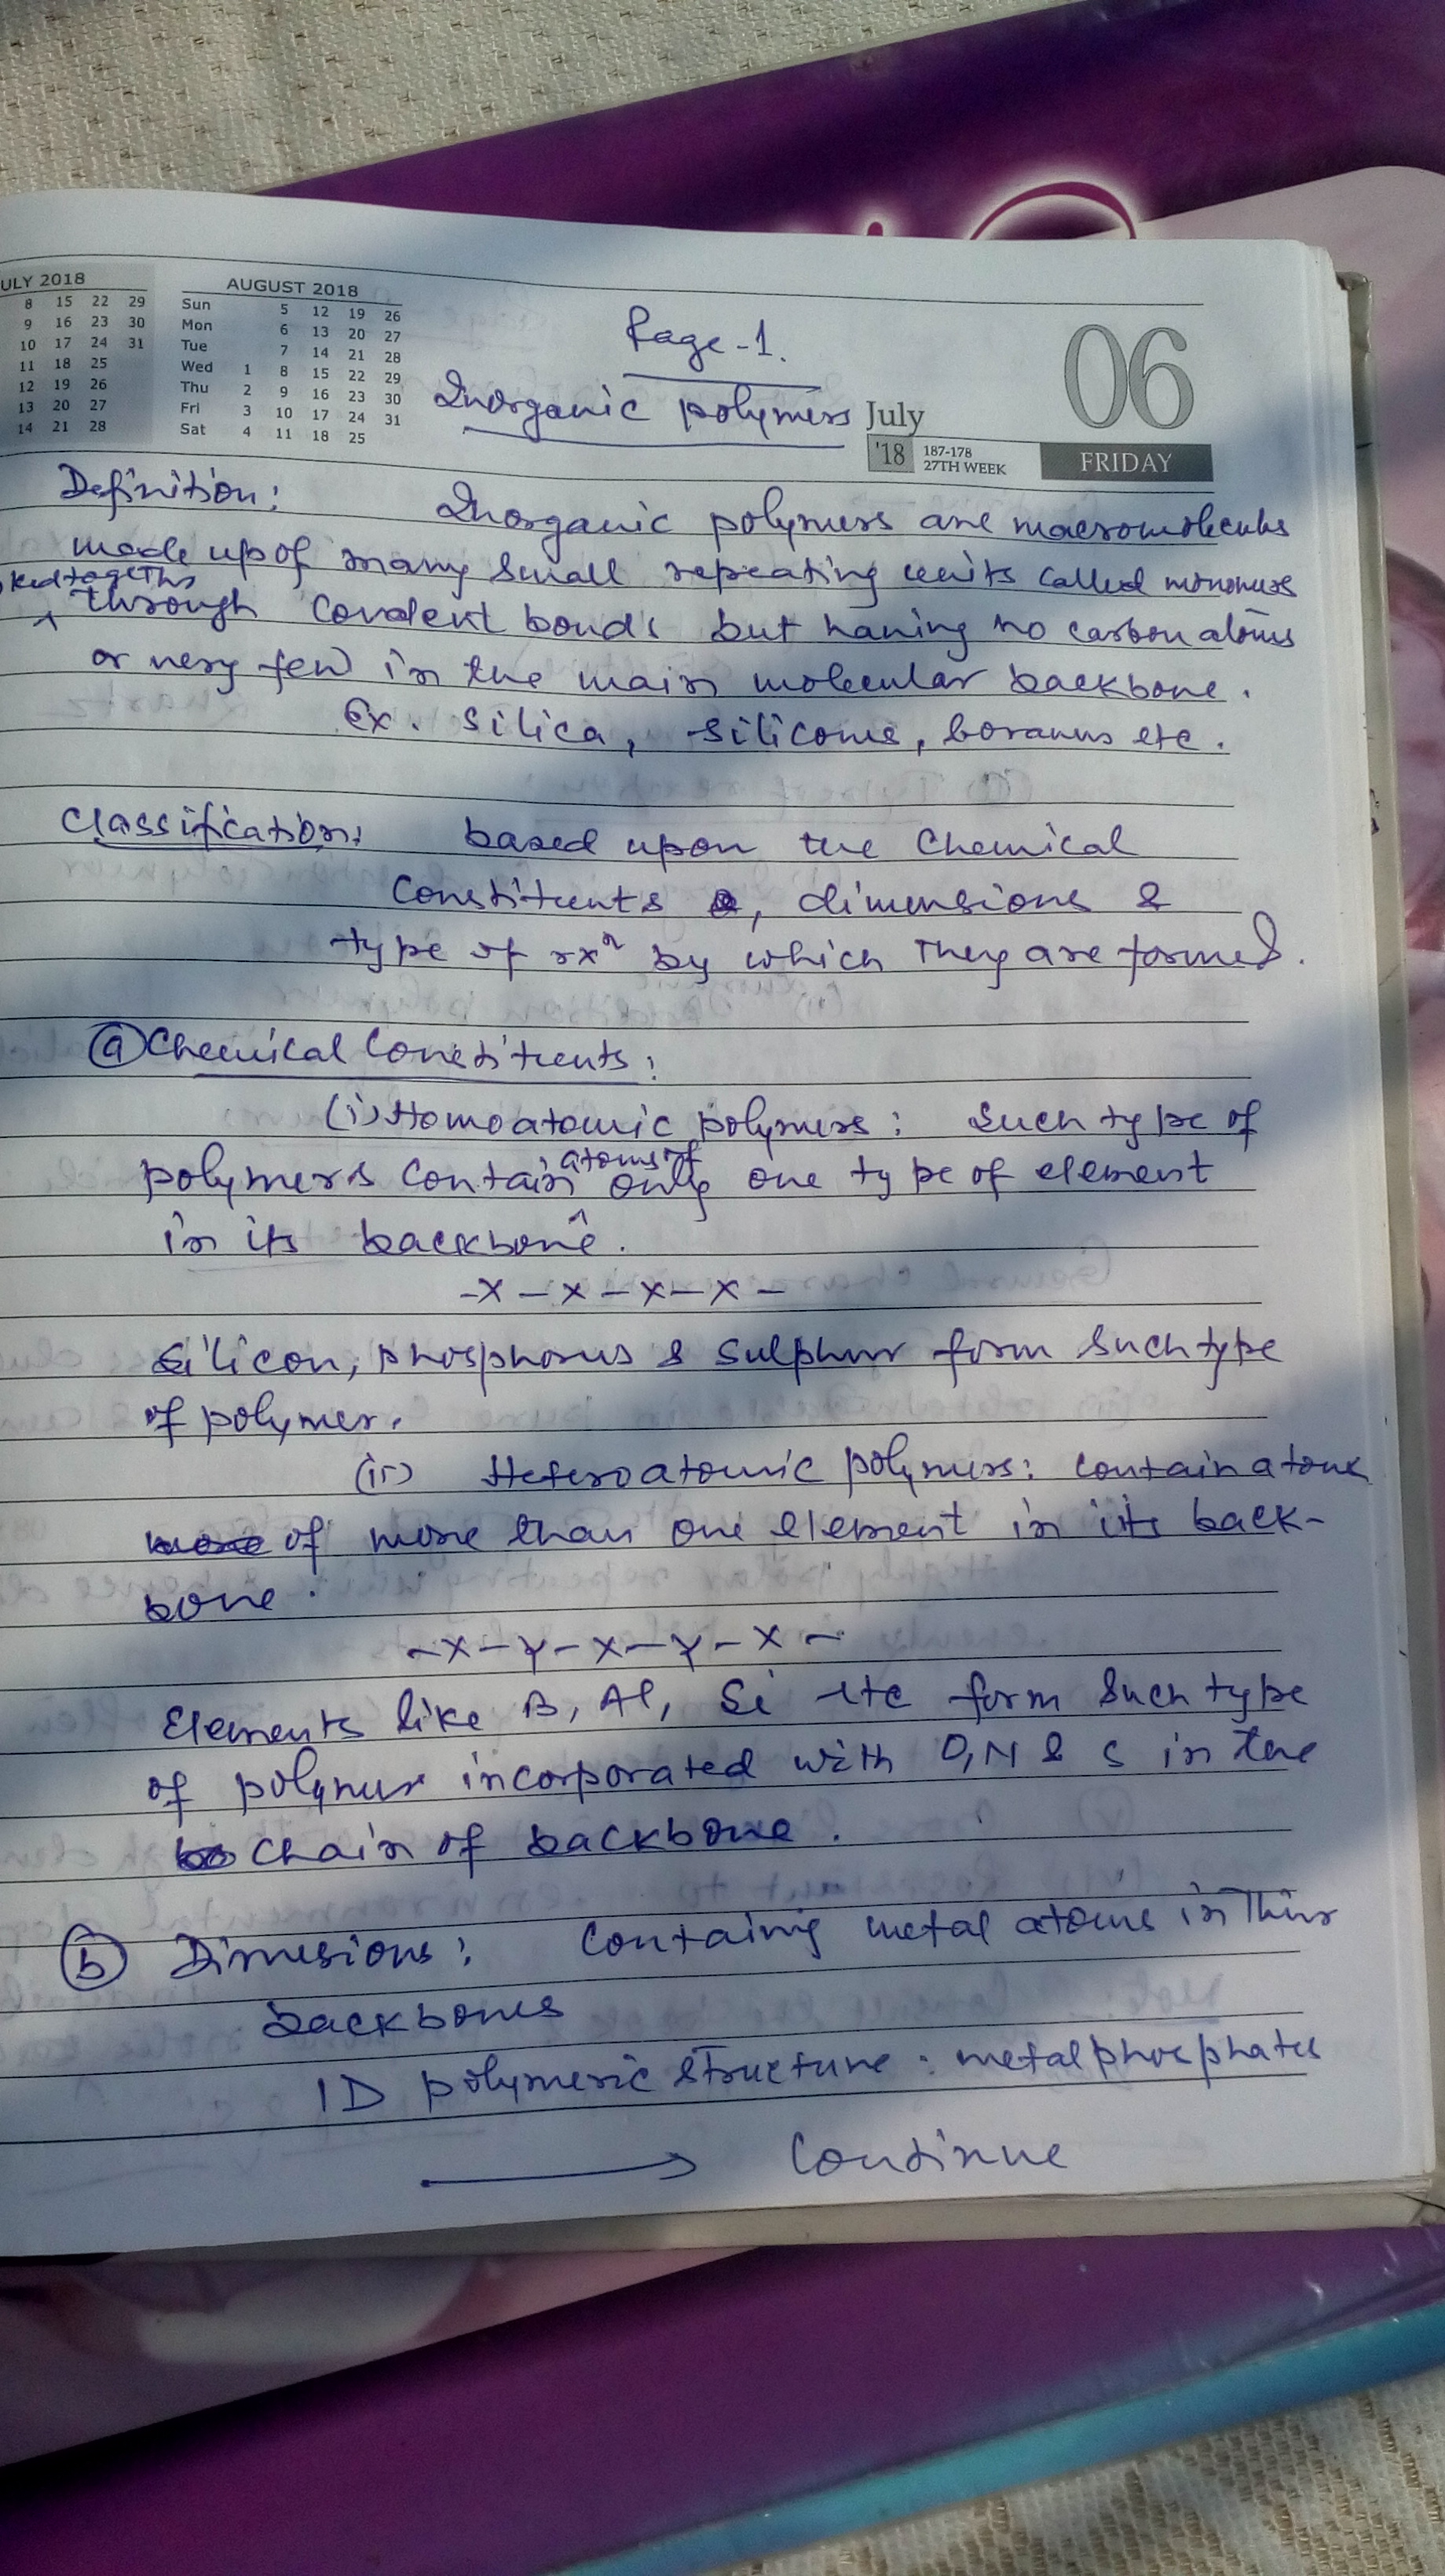 JULY 2018
8 15 22 29
9 16 23 30
10 17 24 31
11 18 25
12 19 26
13 20 27
14 21 28
AUGUST 2018
Sun 5 12 19 26
Mon 6 13 20 27
Tue 7 14 21 28
Wed 1 8 15 22 29
Thu 2 9 16 23 30
Fri 3 10 17 24 31
Sat 4 11 18 25
Page-1.
Inorganic polymers
July
06
'18
187-178
27TH WEEK
FRIDAY
Definition: Inorganic polymers are macromolecules
made up of many small repeating units called monomers
together
through covalent bonds but having no carbon atoms
or very few in the main molecular backbone.
Ex. Silica, silicones, boranes etc.
Classification: based upon the Chemical
Constituents, dimensions &
type of rxn by which They are formed.
(a) Chemical Constituents:
(i) Homoatomic polymers: Such type of
atoms of
polymers contain only one type of element
in its backbone.
-X-X-X-X-
Silicon, phosphorus & Sulphur form Such type
of polymer.
(ii) Heteroatomic polymers: contain atoms
more of more than one element in its back-
bone.
-X-Y-X-Y-X-
Elements like B, Al, Si etc form Such type
of polymer incorporated with O, N & S in the
chain of backbone.
(b) Dimesions: Containg metal atoms in Thir
backbones
1D polymeric structure: metal phosphates
→ Continue